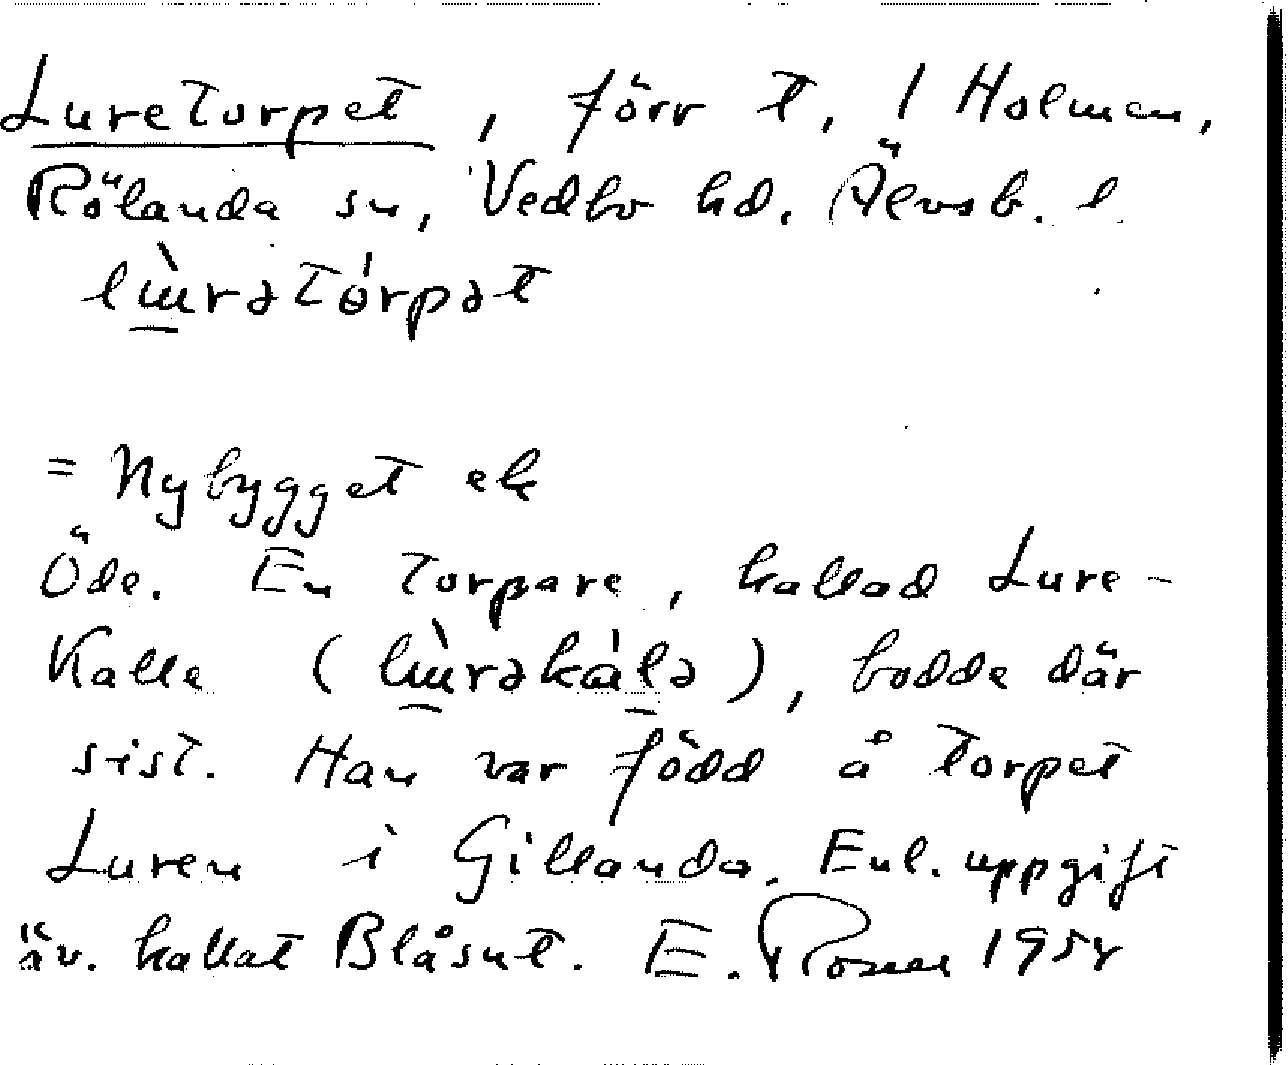 Luretorpet, förr t, 1 Holmen,
Rölanda sn, Vedbo hd. Älvsb. l.
lu̱̇rətórpət
= Nybygget ek
Öde. En torpare, kallad Lure-
Kalle (lu̱̇rəkáḻə), bodde där
sist. Han var född å torpet
Luren i Gillanda. Enl. uppgift
äv. kallat Blåsut. E. 195